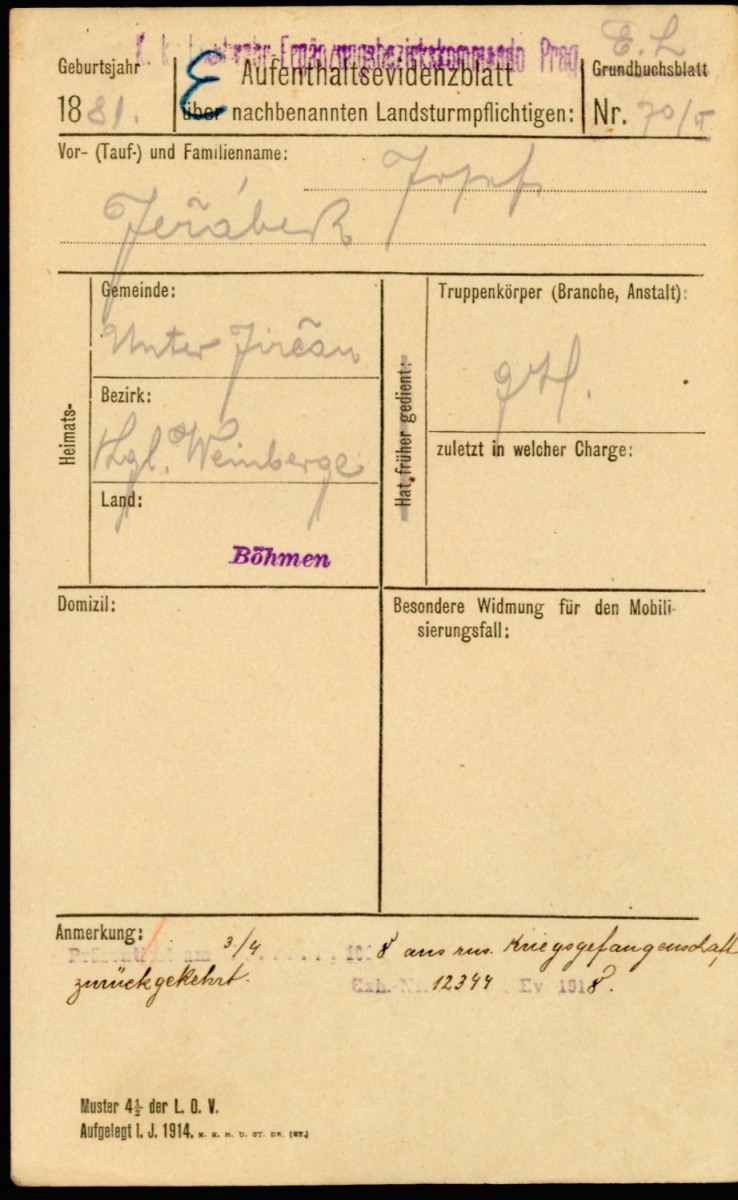 K. k. Landwehr-Ergänzungsbezirkskommando Prag
E. L
Geburtsjahr
1881.
E
Aufenthaltsevidenzblatt
über nachbenannten Landsturmpflichtigen:
Grundbuchsblatt
Nr. 70/II
Vor- (Tauf-) und Familienname:
Josef
Jeřábek
Heimats-
Gemeinde:
Unter Jirčan
Bezirk:
Kgl. Weinberge
Land:
Böhmen
Hat früher gedient:
Truppenkörper (Branche, Anstalt):
zuletzt in welcher Charge:
Domizil:
Besondere Widmung für den Mobili-
sierungsfall:
Anmerkung:
Präsentiert am 3./4 1918 aus rus. Kriegsgefangenschaft
zurückgekehrt. Exh.-Nr. 12344 Ev 1918.
Muster 4½ der L. O. V.
Aufgelegt I. J. 1914. K. K. H. U. ST. DR. (ST.)